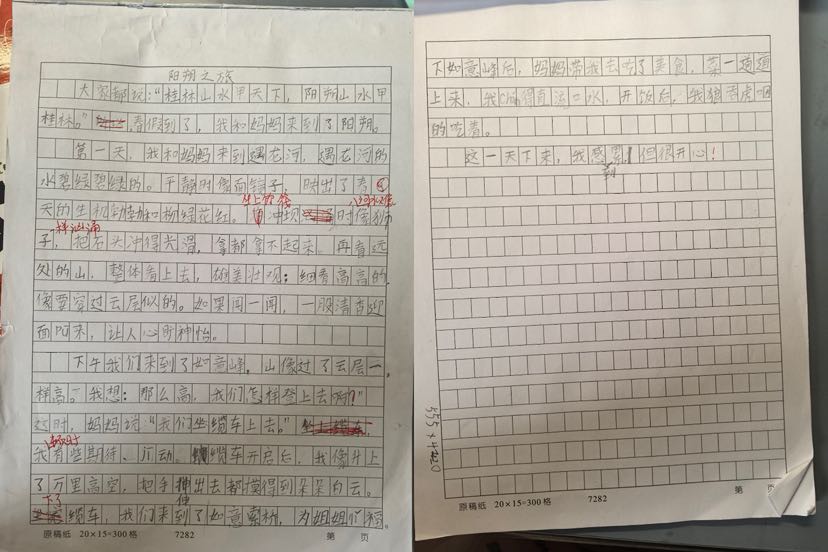 阳朔之旅
大家都说:“桂林山水甲天下,阳朔山水甲
桂林。”春假到了,我和妈妈来到了阳朔。
第一天,我和妈妈来到遇龙河,遇龙河的
水碧绿碧绿的。平静时像面镜子,映出了春
天的生机勃勃和柳绿花红。冲坝时像狮
坐上竹筏
样汹涌
子,把石头冲得光滑,拿都拿不起来。再看远
处的山,整体看上去,雄美壮观;细看高高的,
像要穿过云层似的。如果闻一闻,一股清香迎
面阿来,让人心旷神怡。
下午我们来到了如意峰。山像过了云层一
样高。我想:那么高,我们怎样登上去啊?”
这时,妈妈说:“我们坐缆车上去。”
我有些期待、冗动。缆车开启后,我像升上
了万里高空,把手伸出去都摸得到朵朵白云。
下了
缆车,我们来到了如意索桥,为姐姐们
原稿纸 20×15=300格 7282 第 页
下如意峰后,妈妈带我去吃了美食,菜一道道
上来,我chán得直流口水,开饭后,我狼吞虎咽
的吃着。
这一天下来,我感到累,但很开心!
原稿纸 20×15=300格 7282 第 页